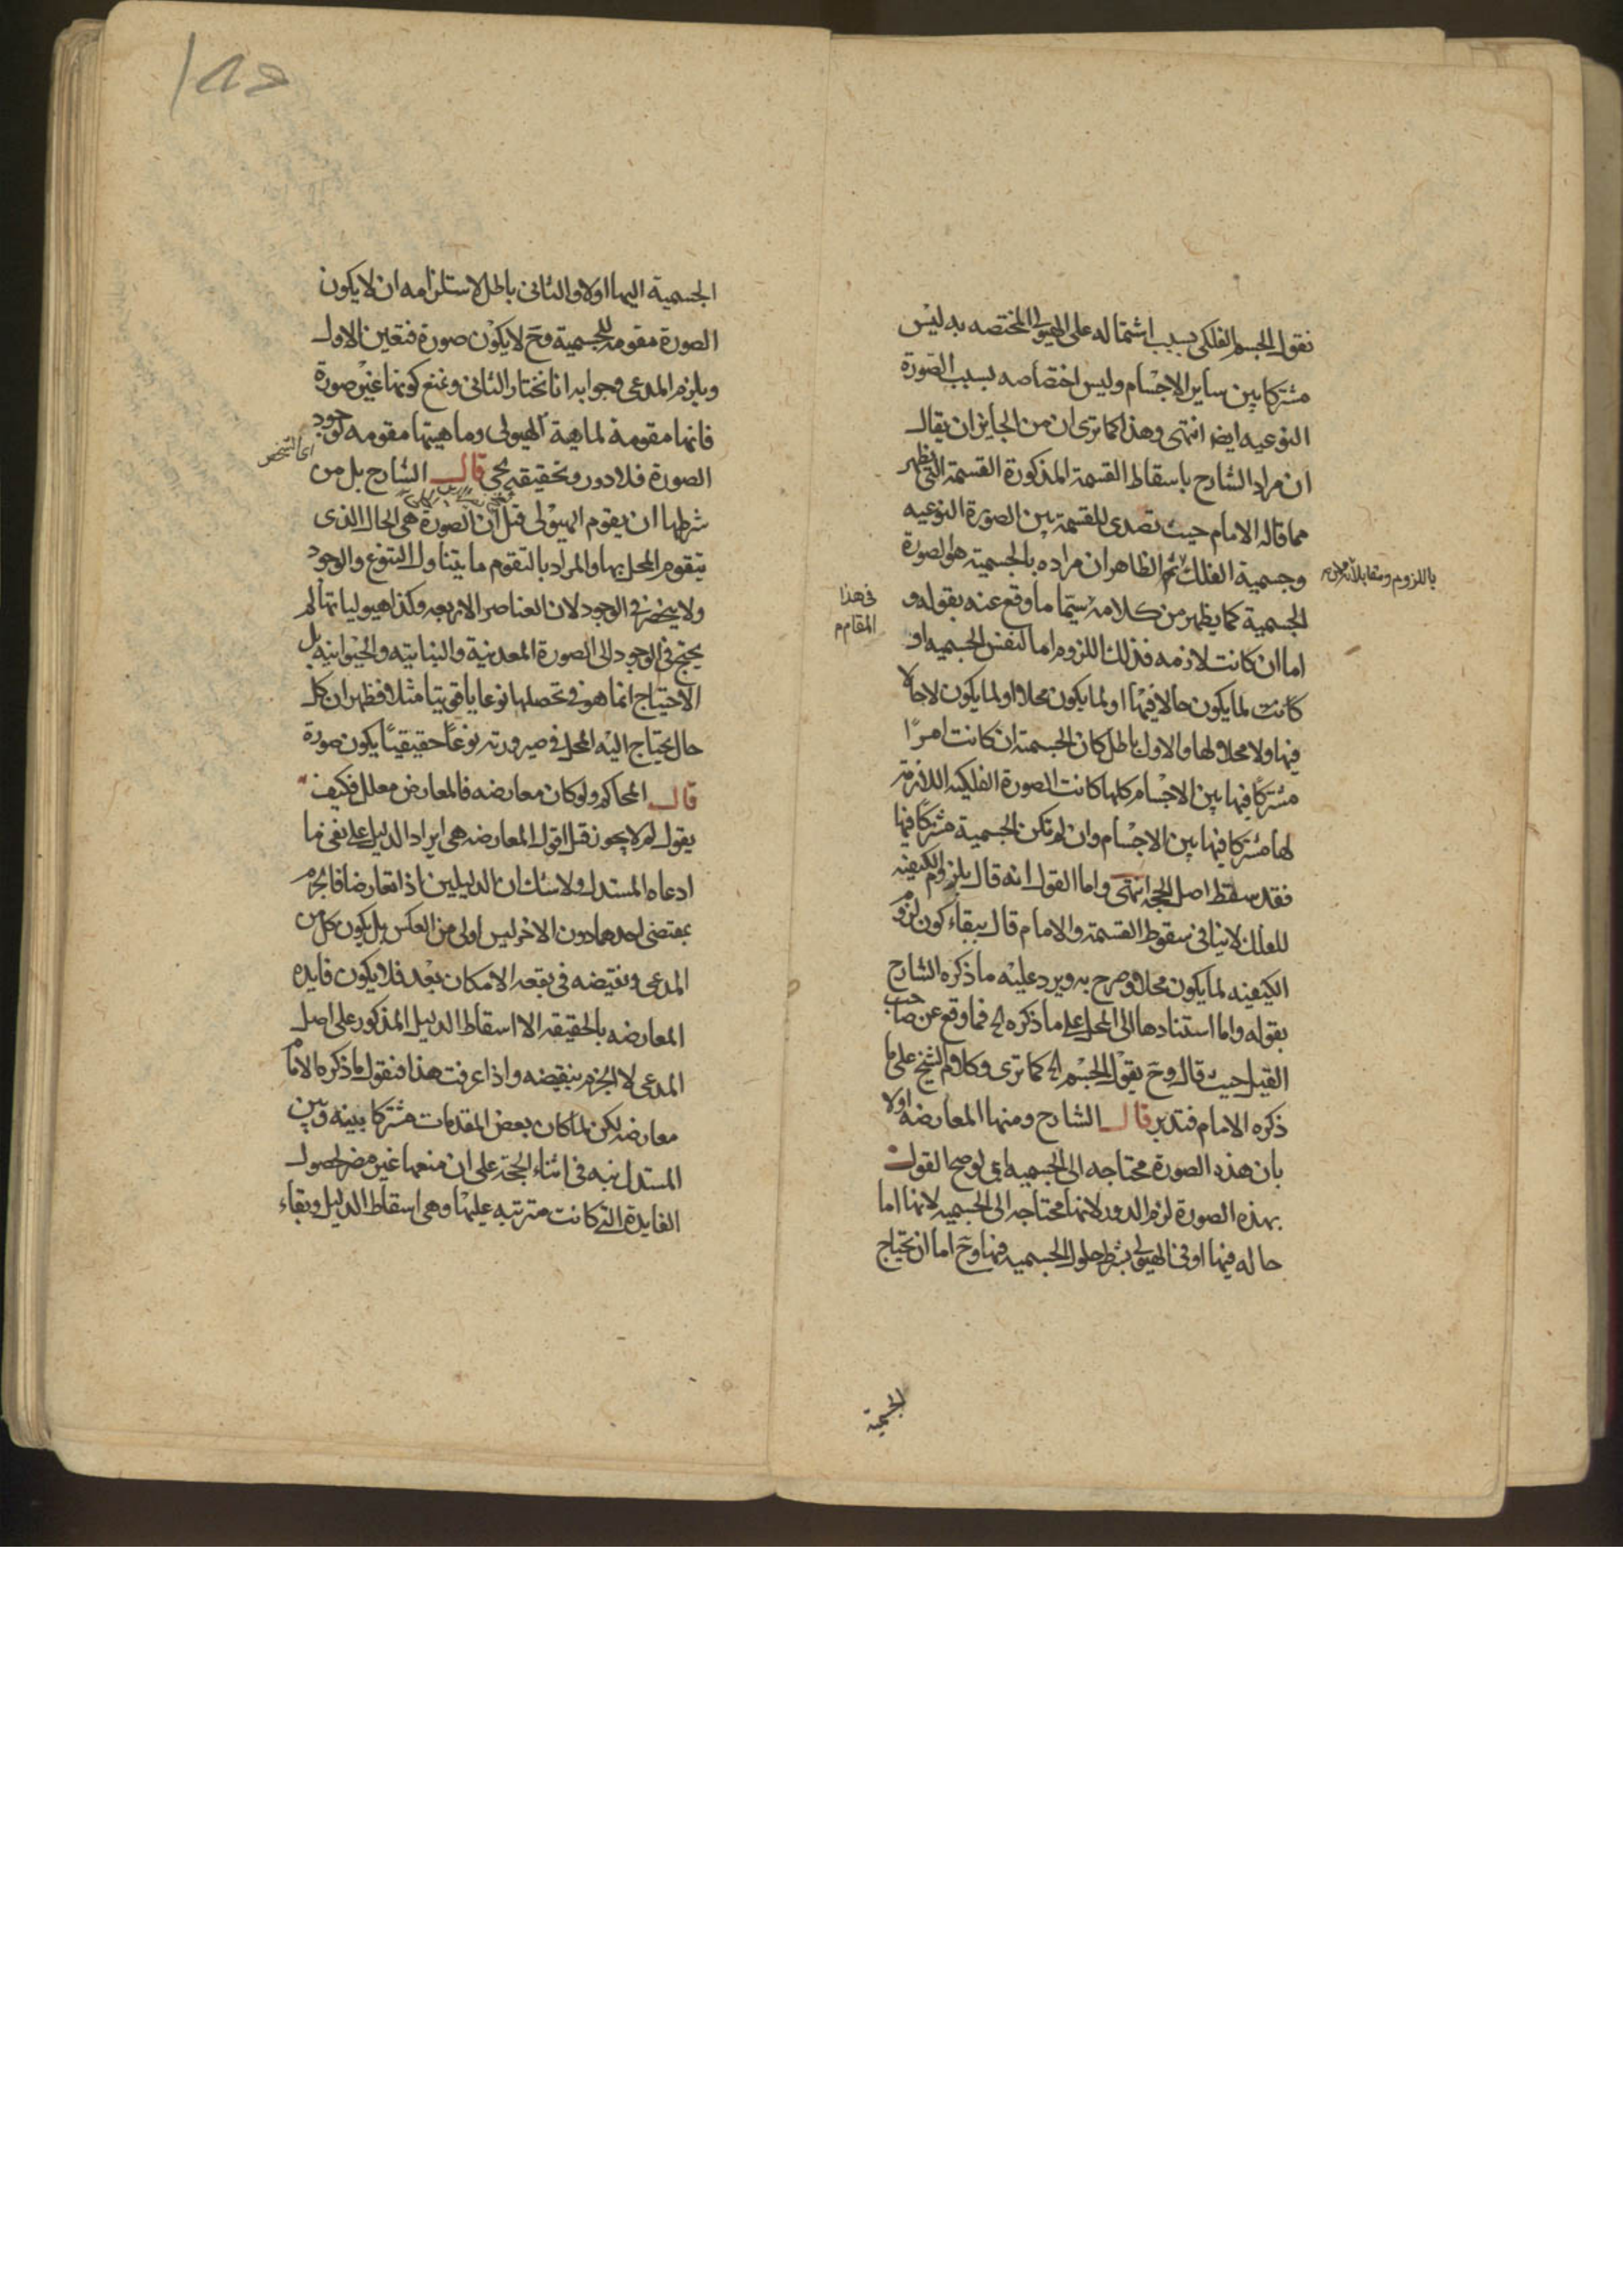 نقول الجسم الفلكى بسبب اشتماله على الهيولى المختصه به ليس
مشتركا بين ساير الاجسام وليس اختصاصه بسبب الصورة
النوعيه ايضا انتهى وهذا كما ترى ان من الجايز ان يقال
ان مراد الشارح باسقاط القسمة المذكورة القسمة التى يظهر
مما قاله الامام حيث تصدى للقسمة بين الصورة النوعيه
وجسمية الفلك ثم الظاهر ان مراده بالجسمية هو الصورة
باللزوم ومقابله
الجسمية كما يظهر من كلامه سيما ما وقع عنه بقوله و
فى هذا
المقام م
اما ان كانت لازمه فذلك اللزوم اما لنفس الجسميه او
كانت لما يكون حالا فيها او لما يكون محلا او لما يكون لا حالا
فيها ولا محلا لها والاول باطل كان الجسمية ان كانت امرًا
مشتركًا فيها بين الاجسام كلها كانت الصورة الفلكيه اللازمة
لها مشتركا فيها بين الاجسام وان لم تكن الجسمية مشتركًا فيها
فقد سقط اصل الحجه انتهى واما القول انه قال بلزوم الكيفيه
للفلك لا ينافى سقوط القسمة والامام قال ببقاء كون لزوم
الكيفيه لما يكون محلا وصرح به ويرد عليه ما ذكره الشارح
بقوله واما استنادها الى المحل على ما ذكره الخ فما وقع عن صاحب
القيل حيث قال وح يقول الجسم الخ كما ترى وكلام الشيخ على ما
ذكره الامام فتدبر قال الشارح ومنها المعارضه اولا
بان هذه الصورة محتاجه الى الجسميه اى لو صح القول
بهذه الصورة لزم الدور لانها محتاجه الى الجسميه لانها اما
حاله فيها او فى الهيولى بشرط حلول الجسميه فيها وح اما ان تحتاج
الجسمية
الجسمية اليها اولا والثانى باطل لاستلزامه ان لا يكون
الصورة مقومه للجسمية وح لا يكون صورة فتعين الاول
ويلزم المدعى وجوابه انا نختار الثانى ونمنع كونها غير صورة
فانها مقومة لماهية الهيولى وماهيتها مقومه لوجود
اى التشخص
الصورة فلا دور وتحقيقه يجئ قال الشارح بل من
شرطها ان يقوم الهيولى قبل ان الصورة هى الحال الذى
يتقوم المحل بها والمراد بالتقوم ما يتناول التنوع والوجود
ولا ينحصر فى الوجود لان العناصر الاربعه وكذا هيولياتها لم
يحتج فى الوجود الى الصورة المعدنية والنباتيه والحيوانيه بل
الاحتياج انما هو فى تحصلها نوعا ياقوتيا مثلا فظهر ان كل
حال يحتاج اليه المحل فى صيرورته نوعًا حقيقيًا يكون صورة
قال المحاكم ولو كان معارضه فالمعارض معلل فكيف
يقول لم لا يجوز قيل اقول المعارضه هى ايراد الدليل على نفى ما
ادعاه المستدل ولا شك ان الدليلين اذا تعارضا فالجزم
بمقتضى احدهما دون الاخر ليس اولى من العكس بل يكون كل من
المدعى ونقيضه فى بقعه الامكان بعد فلا يكون فايده
المعارضه بالحقيقه الا اسقاط الدليل المذكور على اصل
المدعى لا الجزم بنقيضه واذا عرفت هذا فنقول ما ذكره الامام
معارضه لكن لما كان بعض المقدمات مشتركا بينه وبين
المستدل نبه فى اثناء الحجة على ان منعها غير مضر لحصول
الفايدة التى كانت مترتبه عليها وهى اسقاط الدليل وبقاء